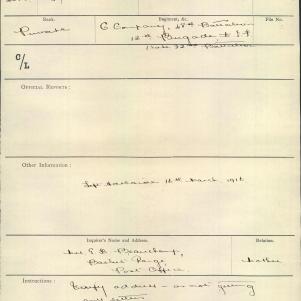 Rank.
Regiment, &c.
File No.
Private
C Company, 48th Battalion
12th Brigade A I F
late 32nd Battalion
C/L
OFFICIAL REPORTS :
Other Information :
Left Adelaide 16th March 1916
Inquirer's Name and Address.
Relation.
Mrs E. B. Beauchamp,
Post Office.
Mother
Instructions :
Verify address – or not giving